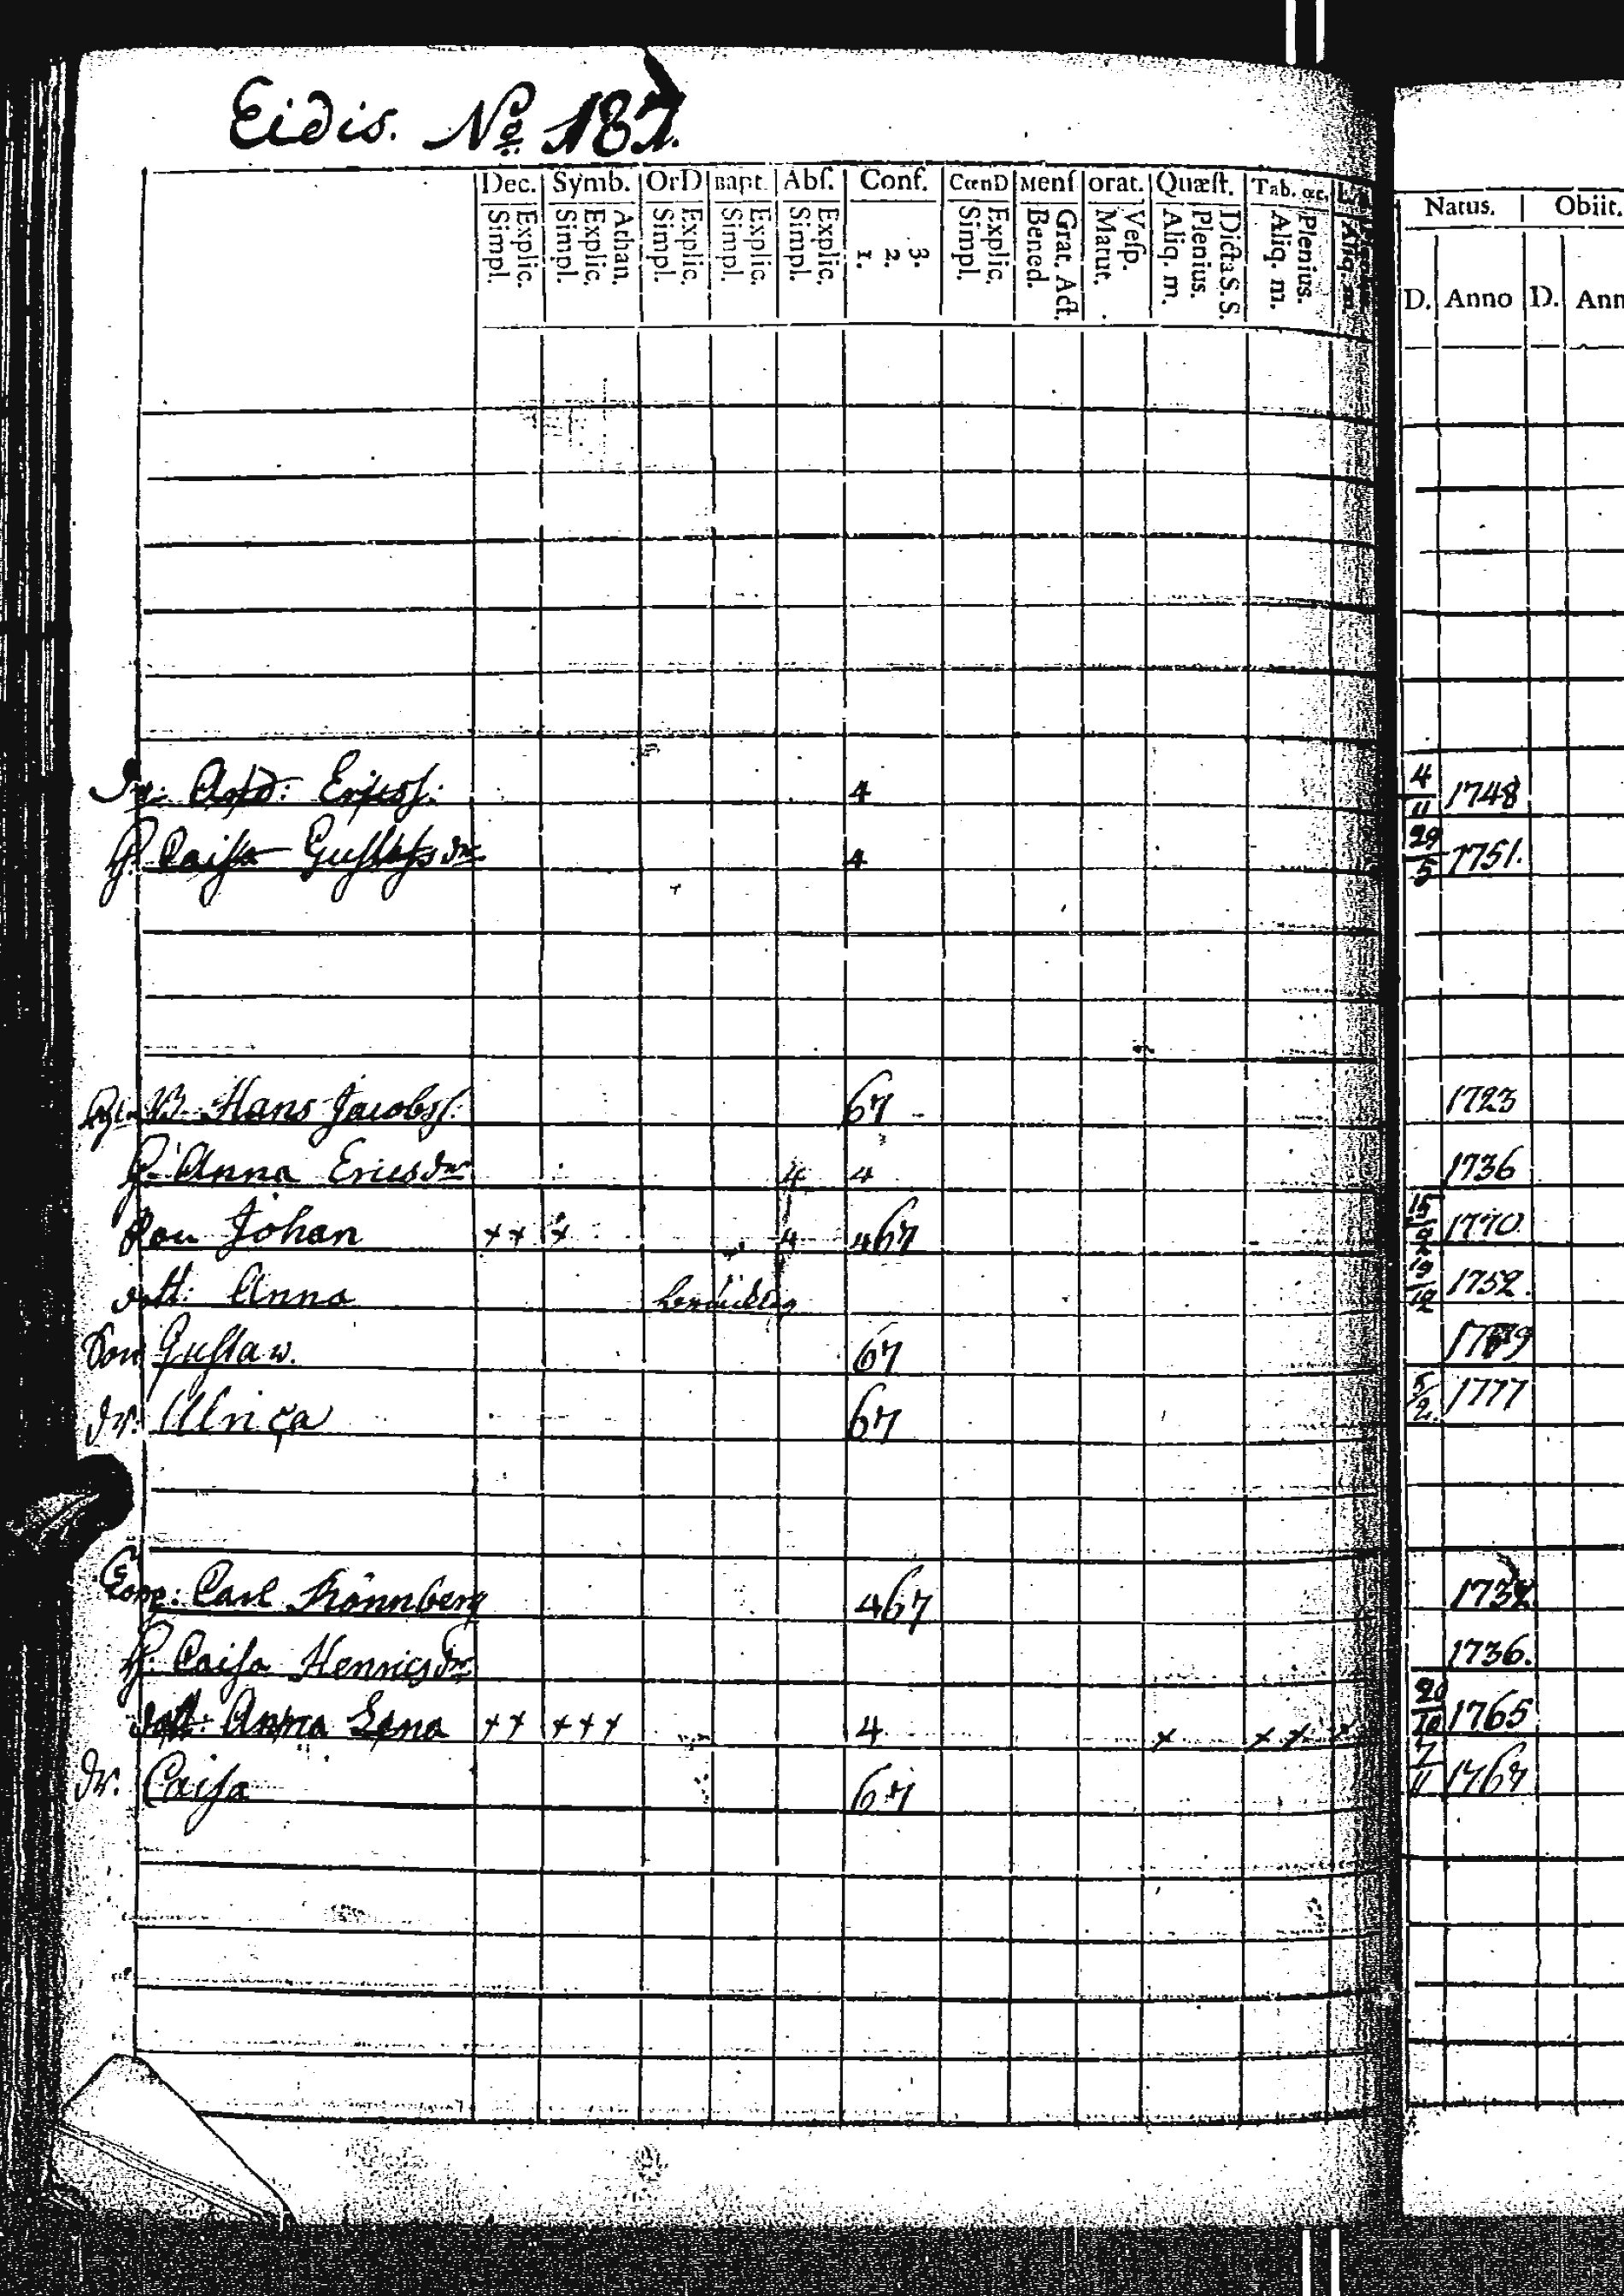 Eidis. No 187.
Dec. Symb. OrD Bapt. Abſ. Conf. CœnD Menſ orat. Quæſt. Tab. œc. Natus. Obiit.
Explic. Simpl. Athan. Explic. Simpl. Explic. Simpl. Explic. Simpl. Explic. Simpl. 3. 2. 1. Explic. Simpl. Grat. Act. Bened. Veſp. Matut. Dicta S. S. Plenius. Aliq. m. Plenius. Aliq. m. Aliq. m. D. Anno D. Ann
And: Ericsſ: 4 4/11 1748
H. Caisa Gustafsdr 4 29/5 1751.
Hans Jacobsſ. 67 1723
H. Anna Ericsdr 4 4 1736
Son Johan ++ + 4 467 15/9 1770.
dott: Anna 19/12 1752.
Son Gustaw. 67
dr. Ulrica 67 5/2. 1777
Carl Rönnberg 467
H. Caisa Henricsdr 1736.
dott: Anna Lena ++ +++ 4 + + + + 20/10 1765
dr. Caisa 67 7/11 1767